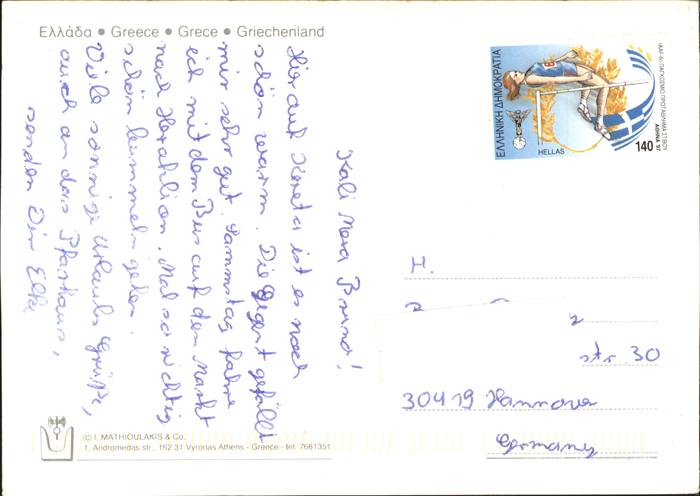 Ελλάδα • Greece • Grece • Griechenland
Kali Mera Bruno!
Hier auf Kreta ist es noch
schön warm. Die Gegend gefällt
mir sehr gut. Sammstag fahre
ich mit dem Bus auf den Markt
nach Heraklion. Mal so richtig
schön bummeln gehen.
Viele sonnige Urlaubs Grüße,
auch an das Pfarrhaus,
senden Dir Elke
ΕΛΛΗΝΙΚΗ ΔΗΜΟΚΡΑΤΙΑ
HELLAS
IAAF-6ο ΠΑΓΚΟΣΜΙΟ ΠΡΩΤΑΘΛΗΜΑ ΣΤΙΒΟΥ
ΑΘΗΝΑ '97
140
H.
str. 30
30419 Hannover
Germany
© I. MATHIOULAKIS & Co.
1, Andromedas str., 162 31 Vyronas Athens - Greece - tel. 7661351